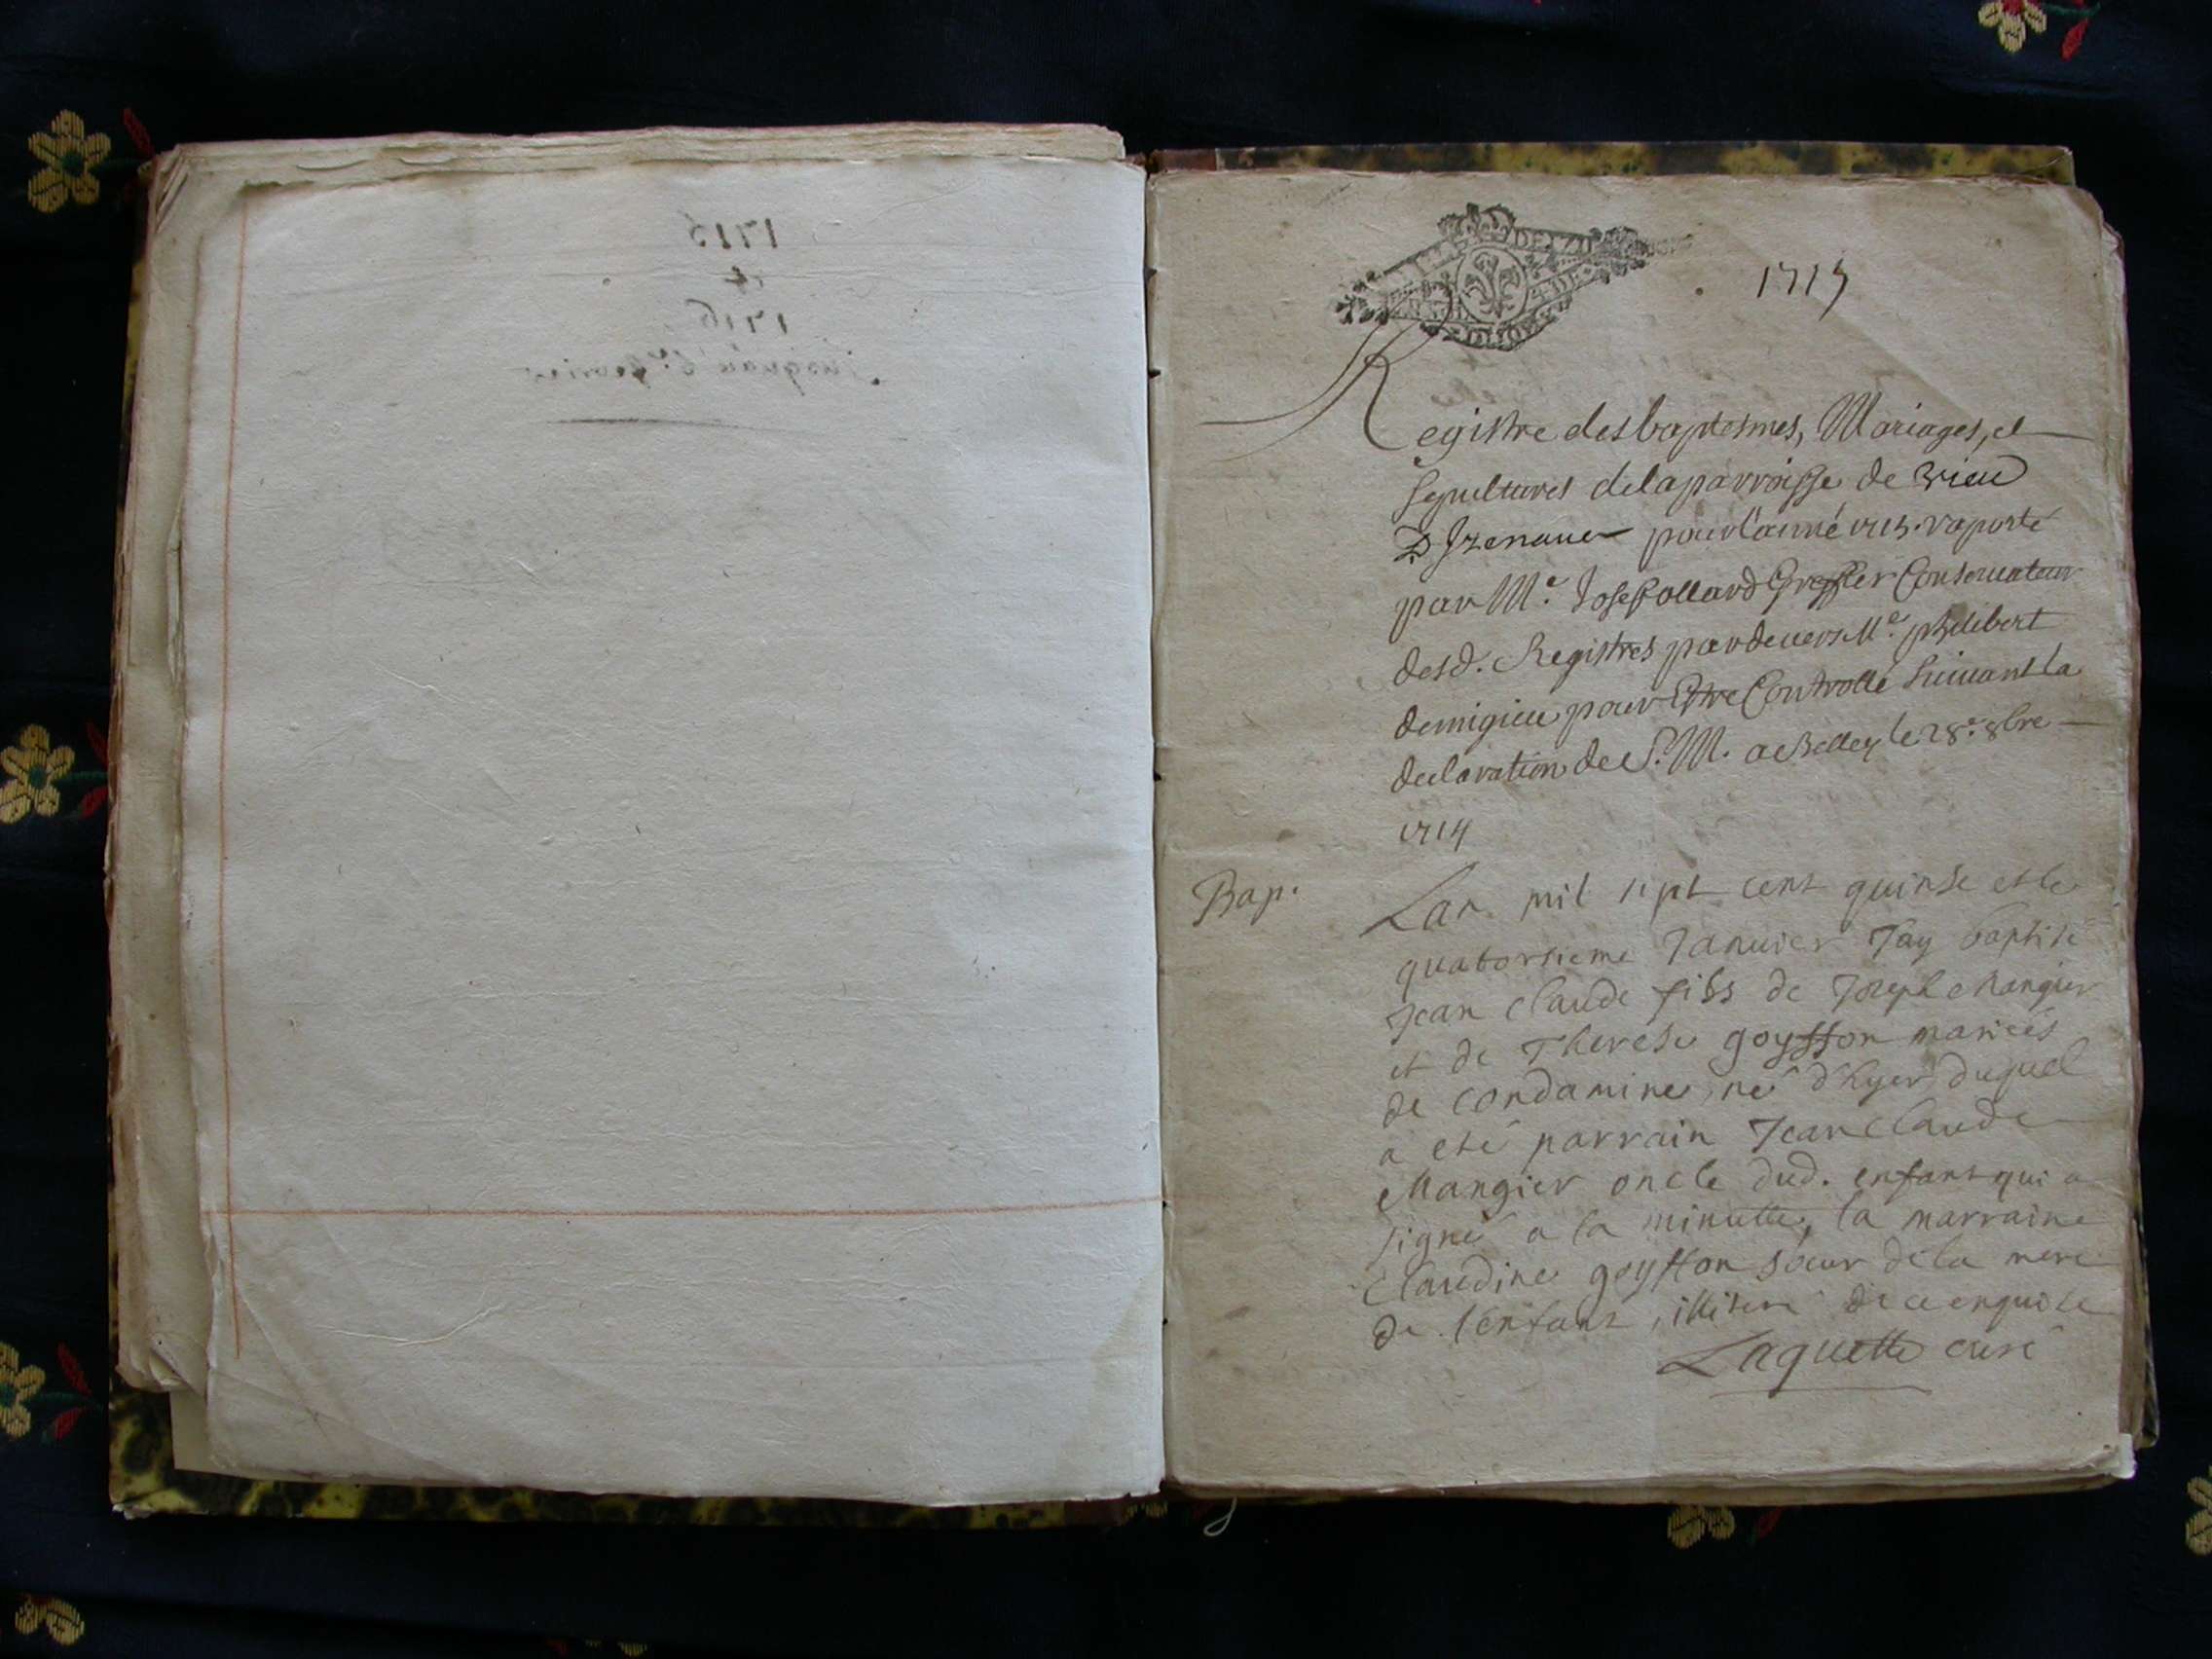 1715
et
1716
Jusqu'au 6e fevrier
1715
Registre des baptesmes, Mariages, et
sepultures de la parroisse de vieu
D Izenave pour l'anné 1715. raporté
par Me. Josep ollard Greffier Conservateur
desd. Registres pardevers Me. philibert
demigieu pour Estre Controllé suivant la
declaration de S. M. a Belley le 28e. 8bre
1714
Bap.
Lan mil sept cent quinse et le
quatorsieme Janvier Jay baptisé
Jean Claude fils de Joseph Mangier
et de Therese goyffon mariés
de condamine, né d'hyer duquel
a eté parrain Jean Claude
Mangier oncle dud. enfant qui a
signé a la minutte, la marraine
Claudine goyffon soeur de la mere
de l'enfant, illiterée de ce enquise
Laquette curé